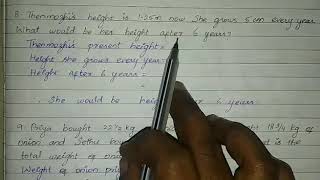 8. Thenmozhi's height is 1.25m now. She grows 5 cm every year.
What would be her height after 6 years?
Thenmozhi's present height =
Height she grows every year =
Height after 6 years =
=
∴ She would be height after 6 years.
9. Priya bought 22 1/2 kg of onion 18 3/4 kg of
onion and Sethu bou is the
total weight of onio
Weight of onion pri